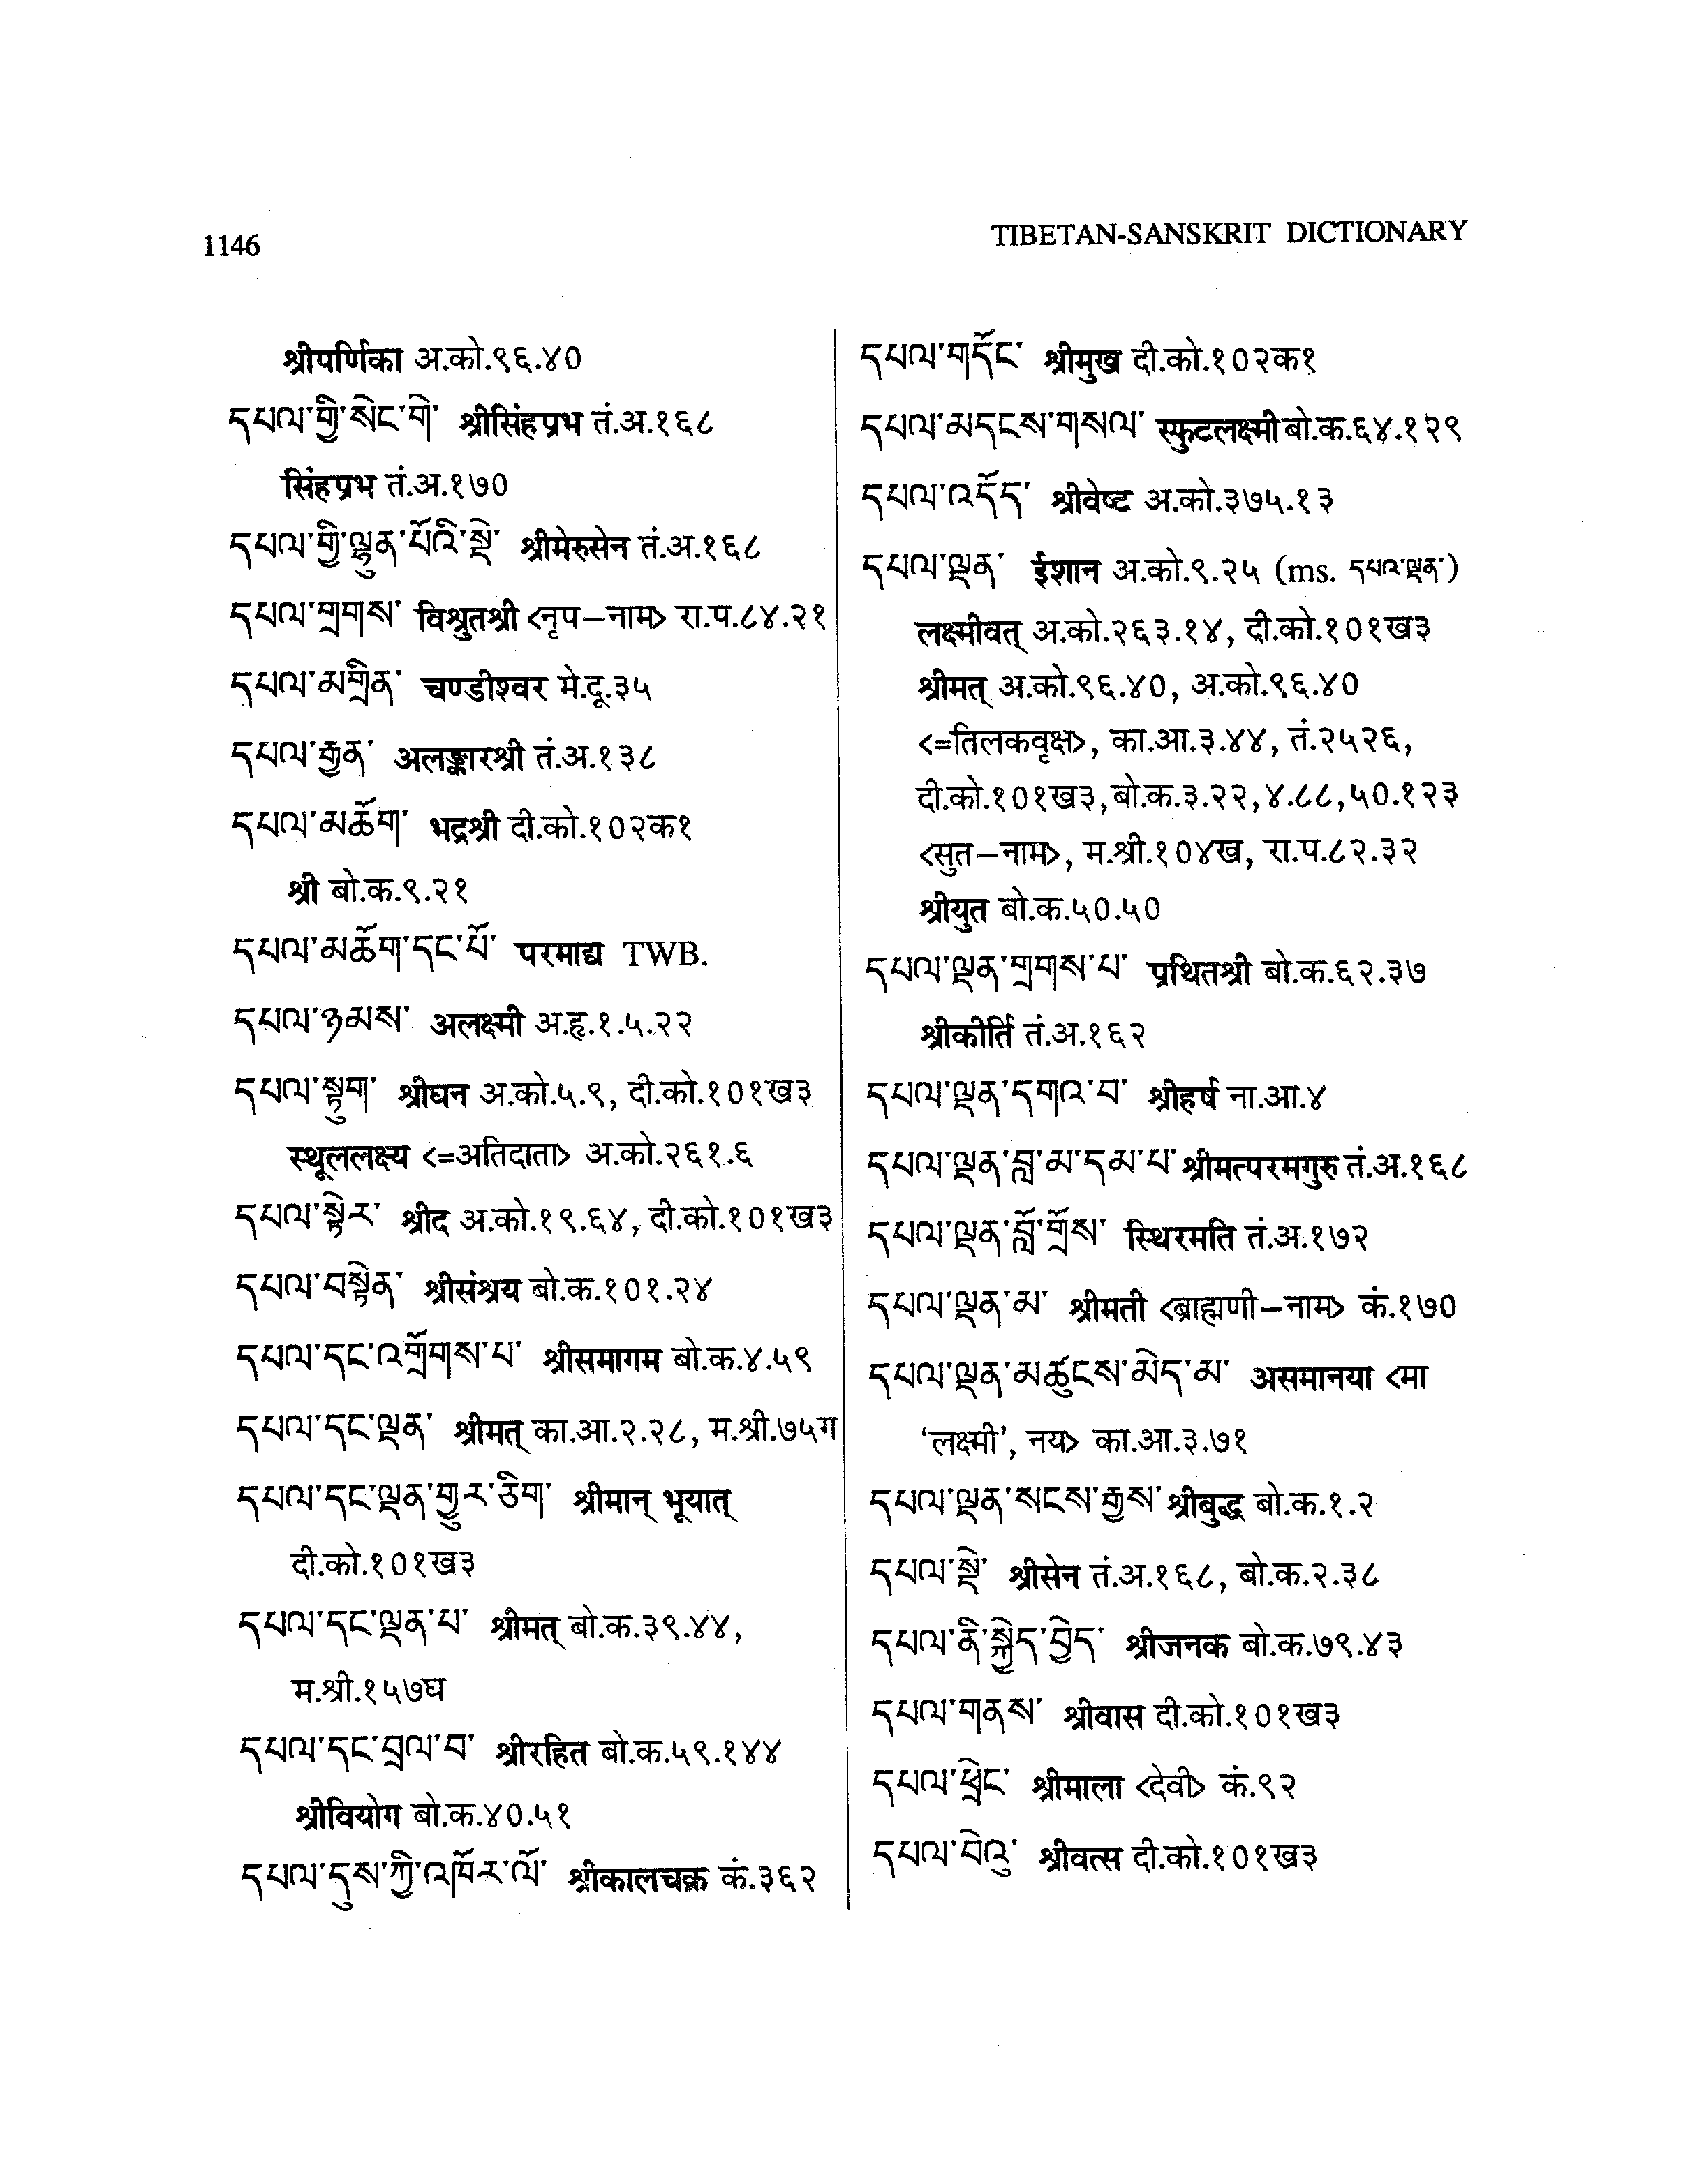 1146
TIBETAN-SANSKRIT DICTIONARY
श्रीपर्णिका अ.को.९६.४०
དཔལ་གྱི་སེང་གེ་ श्रीसिंहप्रभ तं.अ.१६८
सिंहप्रभ तं.अ.१७०
དཔལ་གྱི་ལྷུན་པོའི་སྡེ་ श्रीमेरुसेन तं.अ.१६८
དཔལ་གྲགས་ विश्रुतश्री <नृप–नाम> रा.प.८४.२१
དཔལ་མགྲིན་ चण्डीश्वर मे.दू.३५
དཔལ་རྒྱན་ अलङ्कारश्री तं.अ.१३८
དཔལ་མཆོག་ भद्रश्री दी.को.१०२क१
श्री बो.क.९.२१
དཔལ་མཆོག་དང་པོ་ परमाद्य TWB.
དཔལ་ཉམས་ अलक्ष्मी अ.हृ.१.५.२२
དཔལ་སྟུག་ श्रीघन अ.को.५.९, दी.को.१०१ख३
स्थूललक्ष्य <=अतिदाता> अ.को.२६१.६
དཔལ་སྟེར་ श्रीद अ.को.१९.६४, दी.को.१०१ख३
དཔལ་བསྟེན་ श्रीसंश्रय बो.क.१०१.२४
དཔལ་དང་འགྲོགས་པ་ श्रीसमागम बो.क.४.५९
དཔལ་དང་ལྡན་ श्रीमत् का.आ.२.२८, म.श्री.७५ग
དཔལ་དང་ལྡན་གྱུར་ཅིག་ श्रीमान् भूयात्
दी.को.१०१ख३
དཔལ་དང་ལྡན་པ་ श्रीमत् बो.क.३९.४४,
म.श्री.१५७घ
དཔལ་དང་བྲལ་བ་ श्रीरहित बो.क.५९.१४४
श्रीवियोग बो.क.४०.५१
དཔལ་དུས་ཀྱི་འཁོར་ལོ་ श्रीकालचक्र कं.३६२
དཔལ་གདོང་ श्रीमुख दी.को.१०२क१
དཔལ་མདངས་གསལ་ स्फुटलक्ष्मी बो.क.६४.१२९
དཔལ་འདོད་ श्रीवेष्ट अ.को.३७५.१३
དཔལ་ལྡན་ ईशान अ.को.९.२५ (ms. དཔའ་ལྡན་)
लक्ष्मीवत् अ.को.२६३.१४, दी.को.१०१ख३
श्रीमत् अ.को.९६.४०, अ.को.९६.४०
<=तिलकवृक्ष>, का.आ.३.४४, तं.२५२६,
दी.को.१०१ख३, बो.क.३.२२,४.८८,५०.१२३
<सुत–नाम>, म.श्री.१०४ख, रा.प.८२.३२
श्रीयुत बो.क.५०.५०
དཔལ་ལྡན་གྲགས་པ་ प्रथितश्री बो.क.६२.३७
श्रीकीर्ति तं.अ.१६२
དཔལ་ལྡན་དགའ་བ་ श्रीहर्ष ना.आ.४
དཔལ་ལྡན་བླ་མ་དམ་པ་ श्रीमत्परमगुरु तं.अ.१६८
དཔལ་ལྡན་བློ་གྲོས་ स्थिरमति तं.अ.१७२
དཔལ་ལྡན་མ་ श्रीमती <ब्राह्मणी–नाम> कं.१७०
དཔལ་ལྡན་མཚུངས་མེད་མ་ असमानया <मा
‘लक्ष्मी’, नय> का.आ.३.७१
དཔལ་ལྡན་སངས་རྒྱས་ श्रीबुद्ध बो.क.१.२
དཔལ་སྡེ་ श्रीसेन तं.अ.१६८, बो.क.२.३८
དཔལ་ནི་སྐྱེད་བྱེད་ श्रीजनक बो.क.७९.४३
དཔལ་གནས་ श्रीवास दी.को.१०१ख३
དཔལ་ཕྲེང་ श्रीमाला <देवी> कं.९२
དཔལ་བེའུ་ श्रीवत्स दी.को.१०१ख३